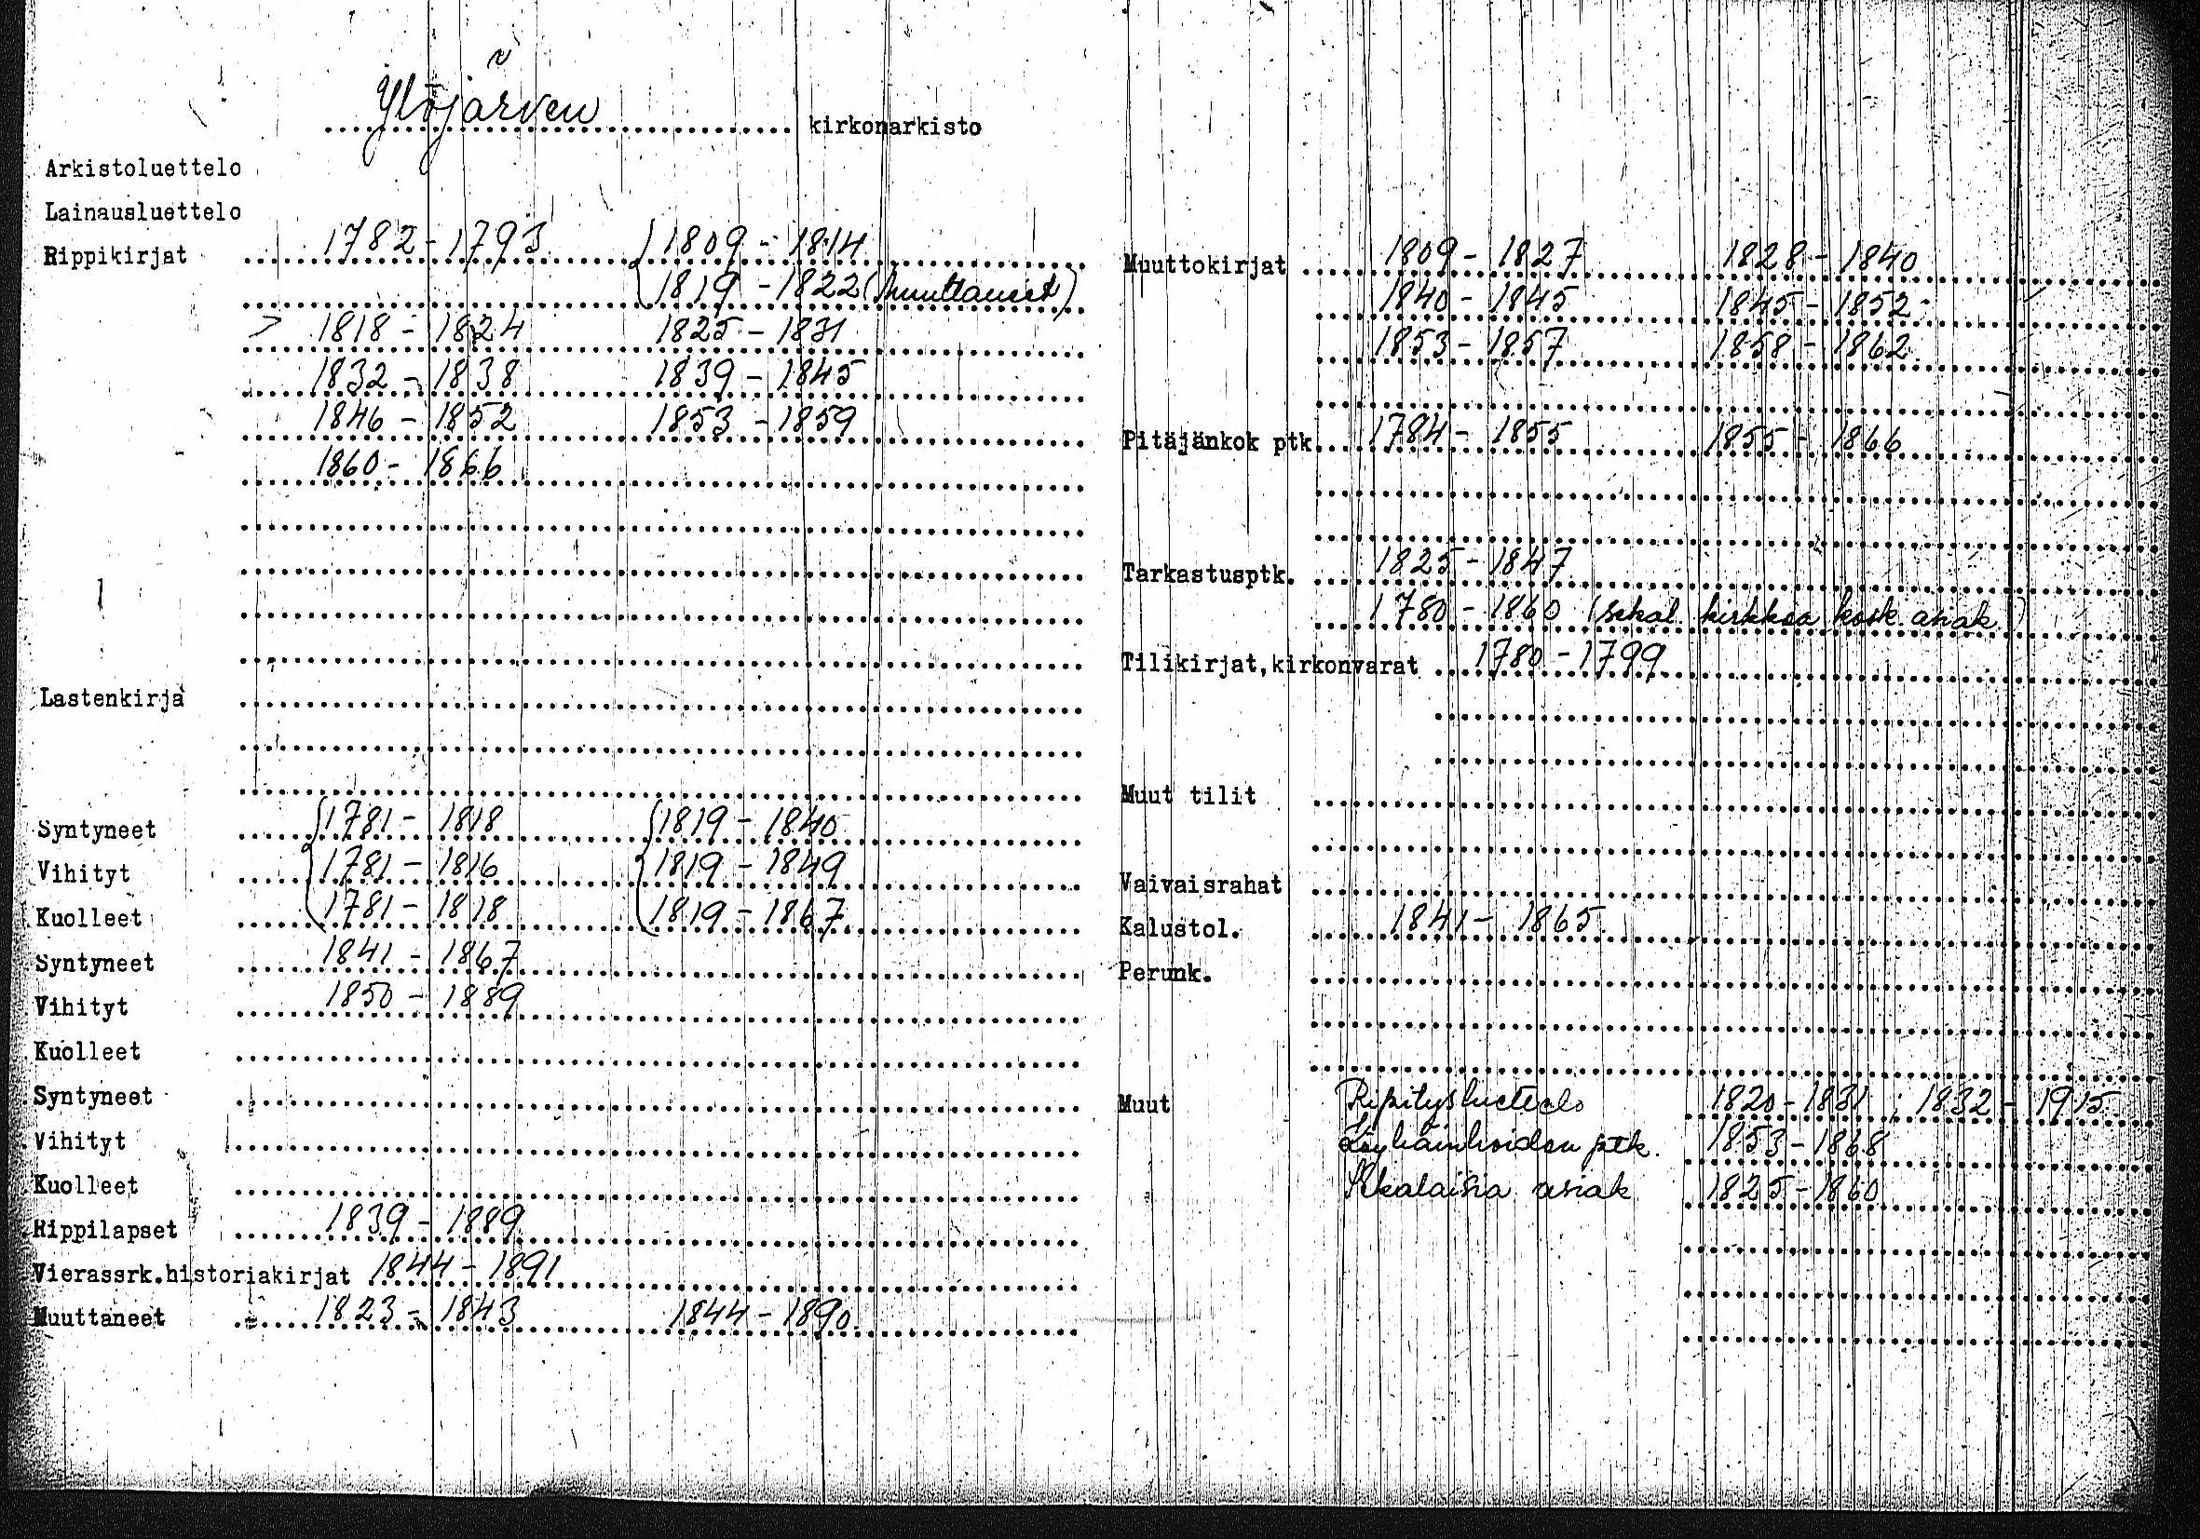 Ylöjärven kirkonarkisto
Arkistoluettelo
Lainausluettelo
Rippikirjat 1782-1793 1809-1814
1819-1822 (muuttaneet)
> 1818-1824 1825-1831
1832-1838 1839-1845
1846-1852 1853-1859
1860-1866
Lastenkirja
Syntyneet 1781-1818 1819-1840
Vihityt 1781-1816 1819-1849
Kuolleet 1781-1818 1819-1867
Syntyneet 1841-1867
Vihityt 1850-1889
Kuolleet
Syntyneet
Vihityt
Kuolleet
Rippilapset 1839-1889
Vierassrk.historiakirjat 1844-1891
Muuttaneet 1823-1843 1844-1890
Muuttokirjat 1809-1827 1828-1840
1840-1845 1845-1852
1853-1857 1858-1862
Pitäjänkok ptk. 1784-1855 1855-1866
Tarkastusptk. 1825-1847
1780-1860 (sekal. kirkkoa kosk. asiak.)
Tilikirjat,kirkonvarat 1780-1799
Muut tilit
Vaivaisrahat
Kalustol. 1841-1865
Perunk.
Muut Ripitysluettelo 1820-1831; 1832-1915
Köyhäinhoidon ptk. 1853-1868
Sekalaisia asiak. 1825-1860